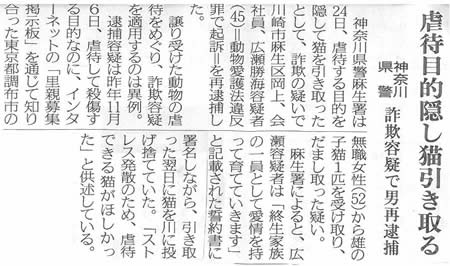 虐待目的隠し猫引き取る
神奈川県警
詐欺容疑で男再逮捕
神奈川県警麻生署は
24日、虐待する目的を
隠して猫を引き取った
として、詐欺の疑いで
川崎市麻生区岡上、会
社員、広瀬勝海容疑者
(45)＝動物愛護法違反
罪で起訴＝を再逮捕し
た。
譲り受けた動物の虐
待をめぐり、詐欺容疑
を適用するのは異例。
逮捕容疑は昨年11月
6日、虐待して殺傷す
る目的なのに、インタ
ーネットの「里親募集
掲示板」を通じて知り
合った東京都調布市の
無職女性(52)から雄の
子猫1匹を受け取り、
だまし取った疑い。
麻生署によると、広
瀬容疑者は「終生家族
の一員として愛情を持
って育てていきます」
と記載された誓約書に
署名しながら、引き取
った翌日に猫を川に投
げ捨てていた。「スト
レス発散のため、虐待
できる猫がほしかっ
た」と供述している。